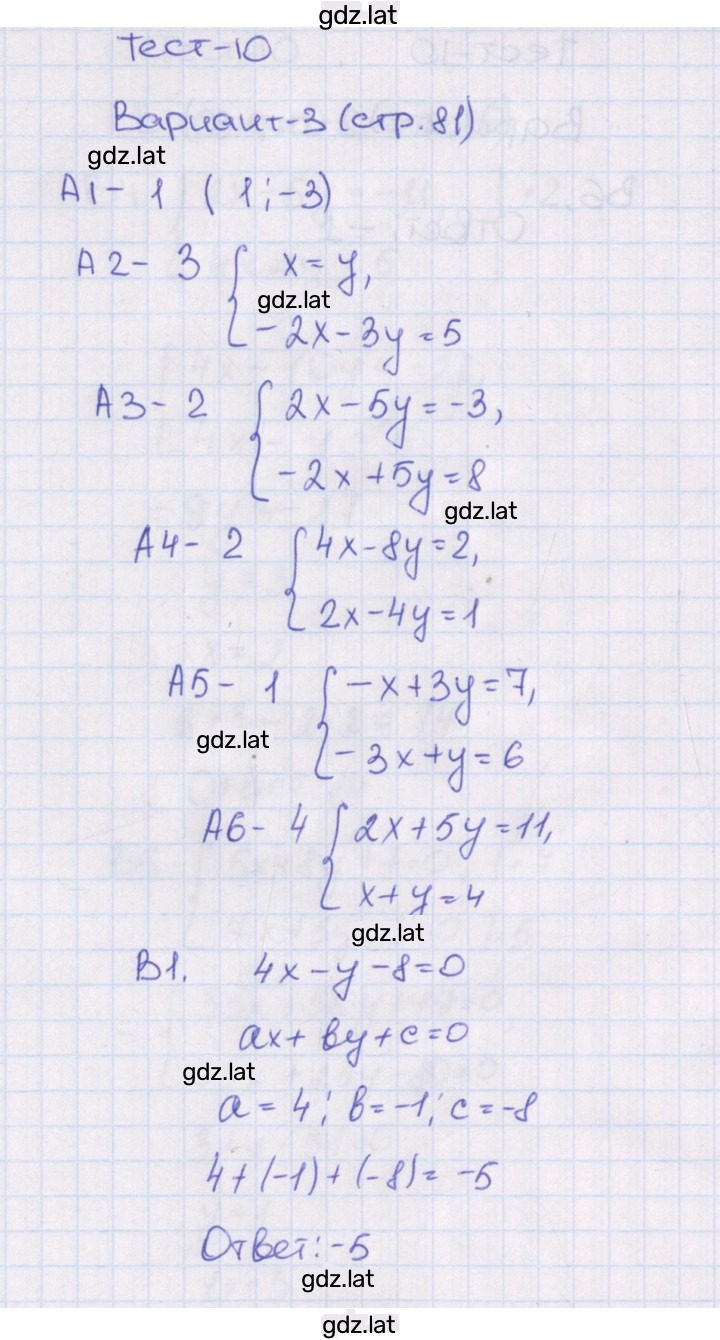 gdz.lat
Тест-10
Вариант-3 (стр.81)
gdz.lat
А1- 1 (1;-3)
А2- 3 { x=y,
gdz.lat
-2x-3y=5
А3- 2 { 2x-5y=-3,
-2x+5y=8
gdz.lat
А4- 2 { 4x-8y=2,
2x-4y=1
А5- 1 { -x+3y=7,
gdz.lat
-3x+y=6
А6- 4 { 2x+5y=11,
x+y=4
gdz.lat
В1. 4x-y-8=0
ax+by+c=0
gdz.lat
a=4; b=-1; c=-8
4+(-1)+(-8)=-5
Ответ:-5
gdz.lat
gdz.lat